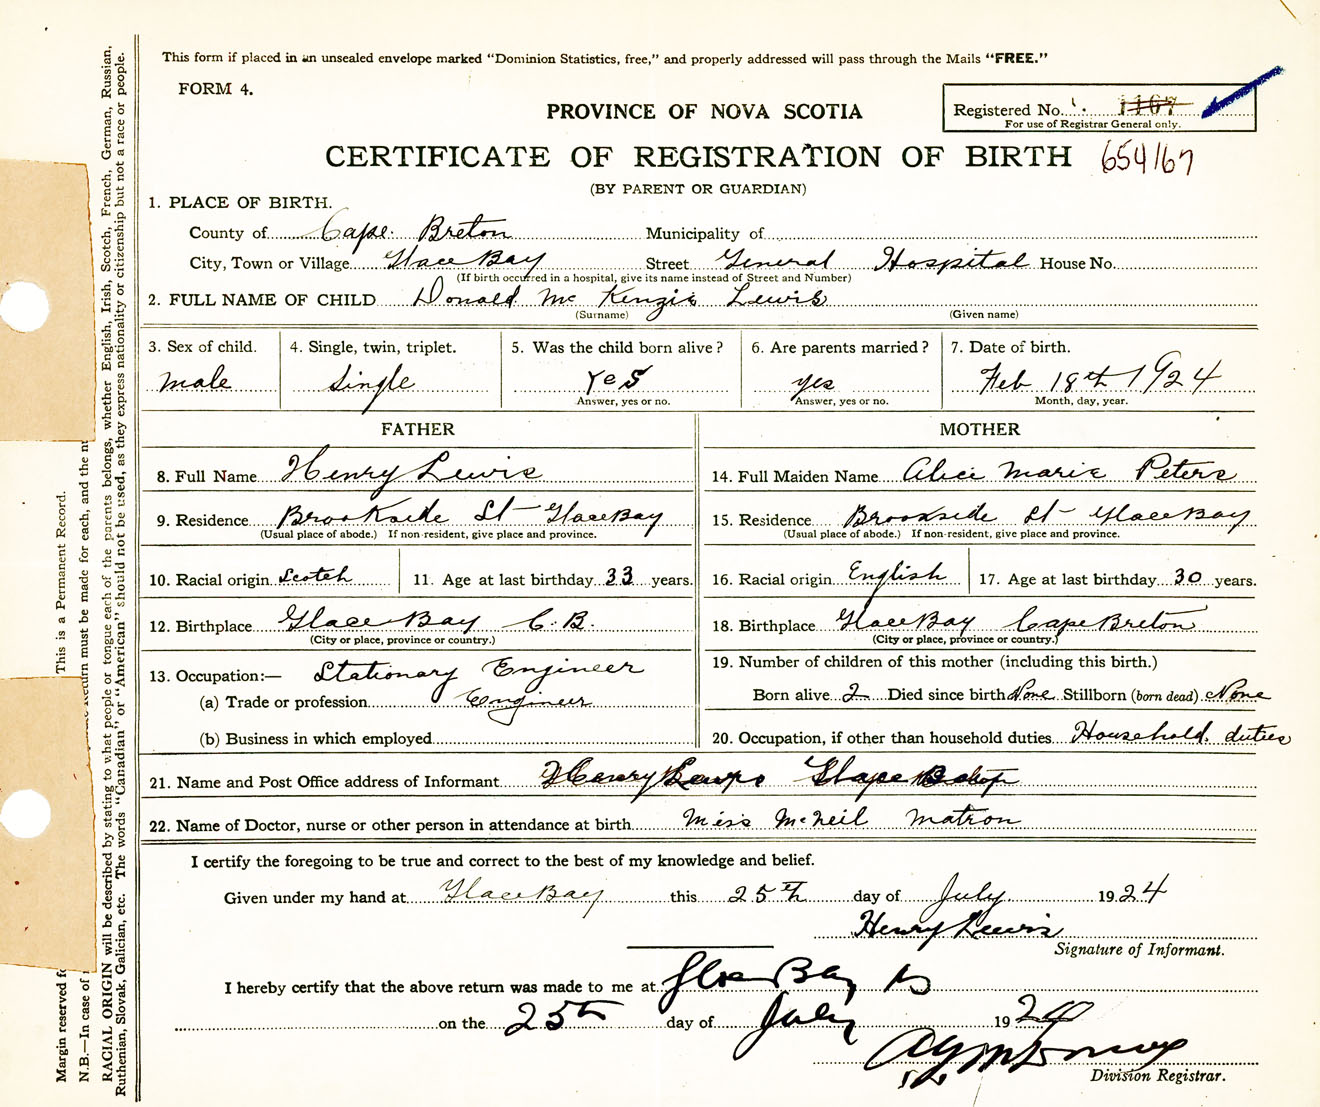 This form if placed in an unsealed envelope marked "Dominion Statistics, free," and properly addressed will pass through the Mails "FREE."
FORM 4.
Registered No. 1167
For use of Registrar General only.
PROVINCE OF NOVA SCOTIA
CERTIFICATE OF REGISTRATION OF BIRTH 654167
(BY PARENT OR GUARDIAN)
1. PLACE OF BIRTH.
County of Cape Breton Municipality of
City, Town or Village Glace Bay Street General Hospital House No.
(If birth occurred in a hospital, give its name instead of Street and Number)
2. FULL NAME OF CHILD Donald McKenzie Lewis
(Surname) (Given name)
3. Sex of child. 4. Single, twin, triplet. 5. Was the child born alive? 6. Are parents married? 7. Date of birth.
male Single Yes yes Feb 18th 1924
Answer, yes or no. Answer, yes or no. Month, day, year.
FATHER MOTHER
8. Full Name Henry Lewis 14. Full Maiden Name Alice Marie Peters
9. Residence Brookside St Glace Bay 15. Residence Brookside St Glace Bay
(Usual place of abode.) If non-resident, give place and province. (Usual place of abode.) If non-resident, give place and province.
10. Racial origin Scotch 11. Age at last birthday 33 years. 16. Racial origin English 17. Age at last birthday 30 years.
12. Birthplace Glace Bay C.B. 18. Birthplace Glace Bay Cape Breton
(City or place, province or country.) (City or place, province or country.)
13. Occupation:— Stationary Engineer 19. Number of children of this mother (including this birth.)
(a) Trade or profession Engineer Born alive 2 Died since birth None Stillborn (born dead) None
(b) Business in which employed 20. Occupation, if other than household duties Household duties
21. Name and Post Office address of Informant Henry Lewis Glace Bay
22. Name of Doctor, nurse or other person in attendance at birth Miss McNeil Matron
I certify the foregoing to be true and correct to the best of my knowledge and belief.
Given under my hand at Glace Bay this 25th day of July 1924
Henry Lewis
Signature of Informant.
I hereby certify that the above return was made to me at Glace Bay
on the 25th day of July 19
Division Registrar.
Margin reserved This is a Permanent Record.
N.B.—In case of return must be made for each, and the
RACIAL ORIGIN will be described by stating to what people or tongue each of the parents belongs, whether English, Irish, Scotch, French, German, Russian,
Ruthenian, Slovak, Galician, etc. The words "Canadian" or "American" should not be used, as they express nationality or citizenship but not a race or people.